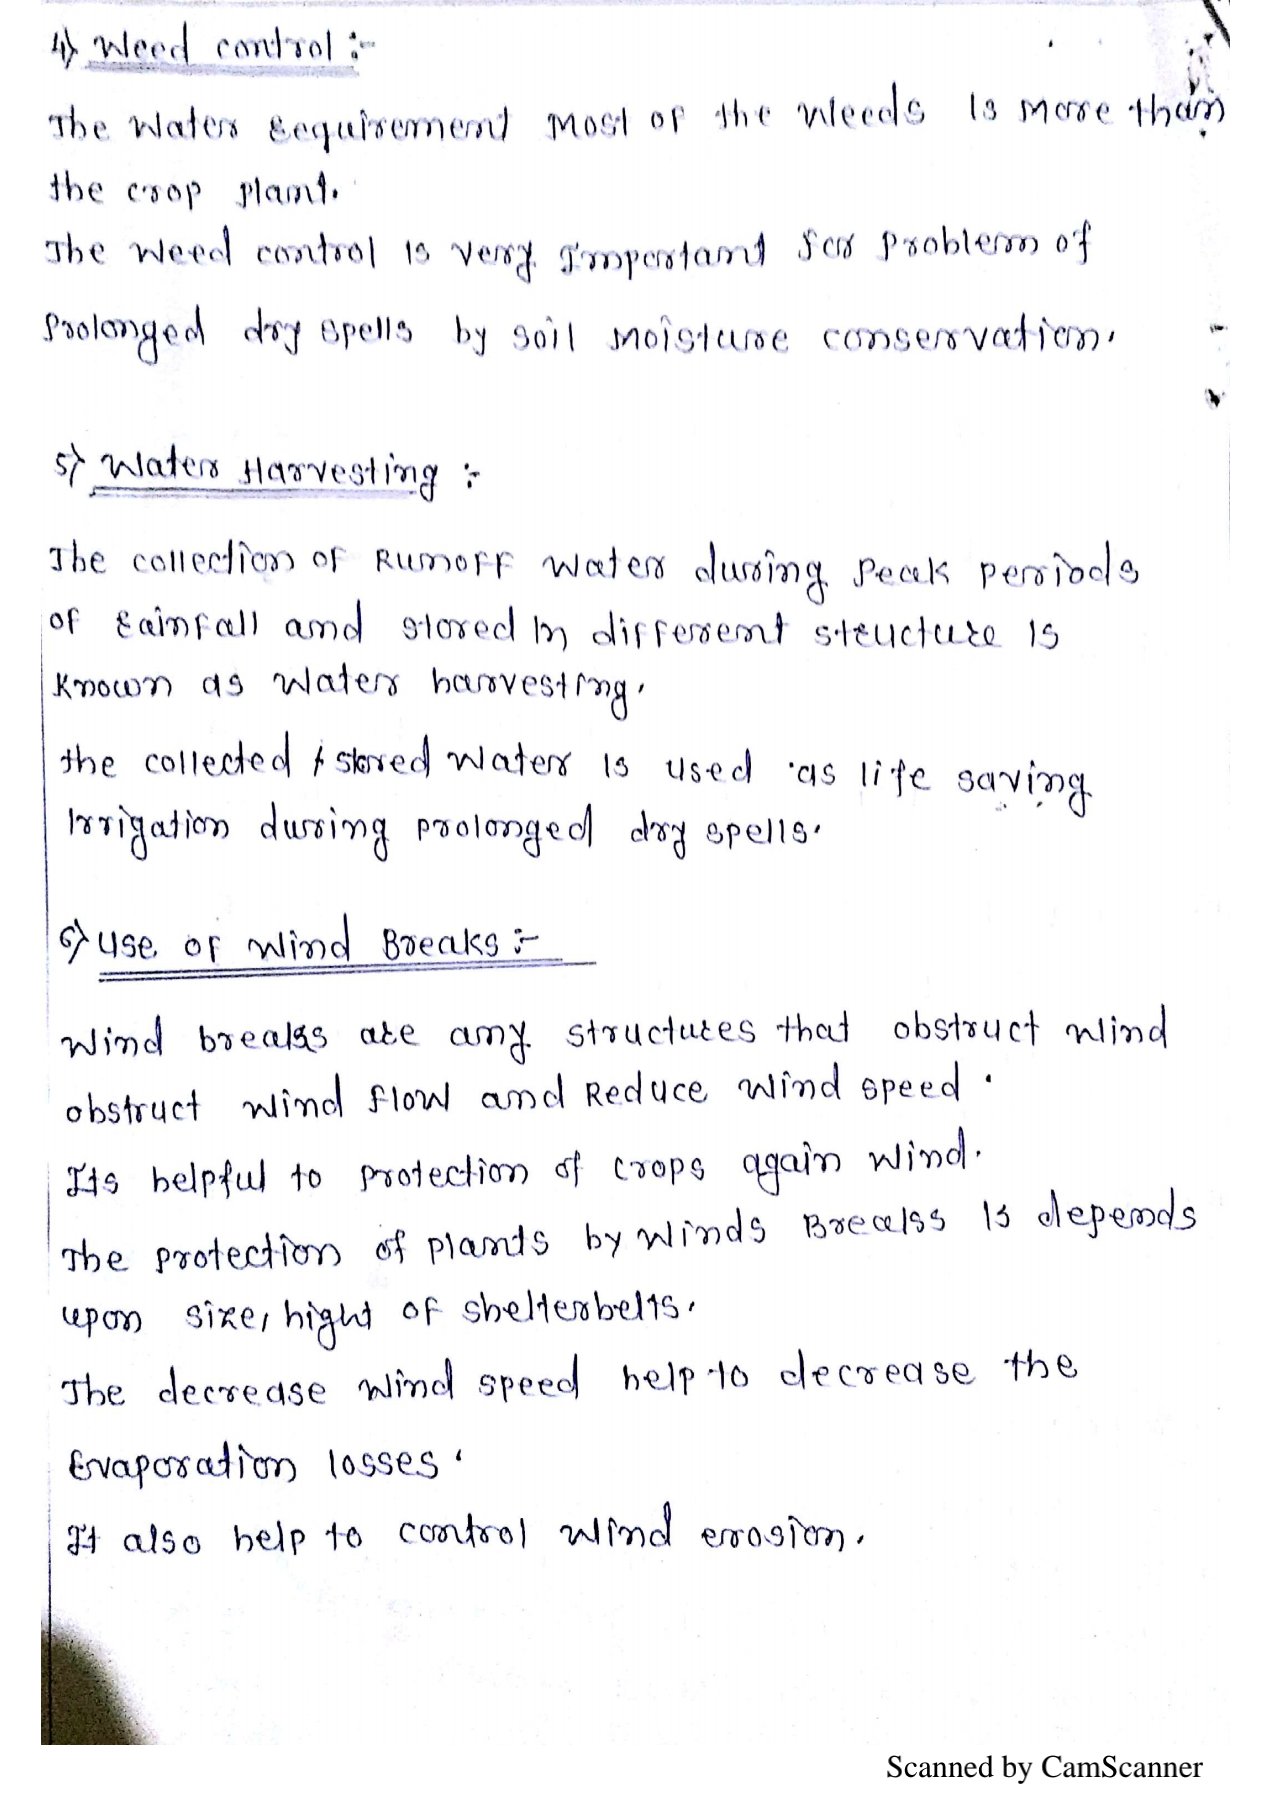 4) Weed control :-
The Water requirement Most of the Weeds is more than
the crop plant.
The Weed control is very Important for Problem of
Prolonged dry spells by soil Moisture conservation.
5) Water Harvesting :-
The collection of RunoFF Water during Peak periods
of rainfall and stored In different structure is
Known as Water harvesting.
the collected & stored Water is used as life saving
Irrigation during prolonged dry spells.
6) Use of Wind Breaks :-
Wind breaks are any structures that obstruct Wind
obstruct Wind flow and Reduce Wind speed.
Its helpful to protection of crops again Wind.
The protection of plants by Winds Brealss is depends
upon size, hight of shelterbelts.
The decrease Wind speed help to decrease the
Evaporation losses.
It also help to control Wind erosion.
Scanned by CamScanner